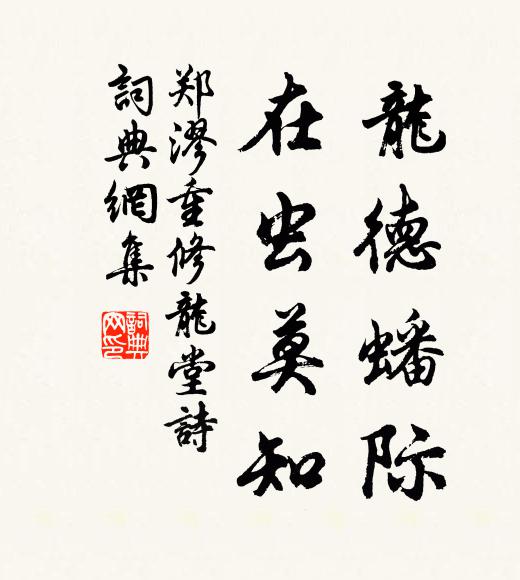 龍德蟠际
在虫莫知
郑漻重修龍堂詩
詞典網集
詞典网印